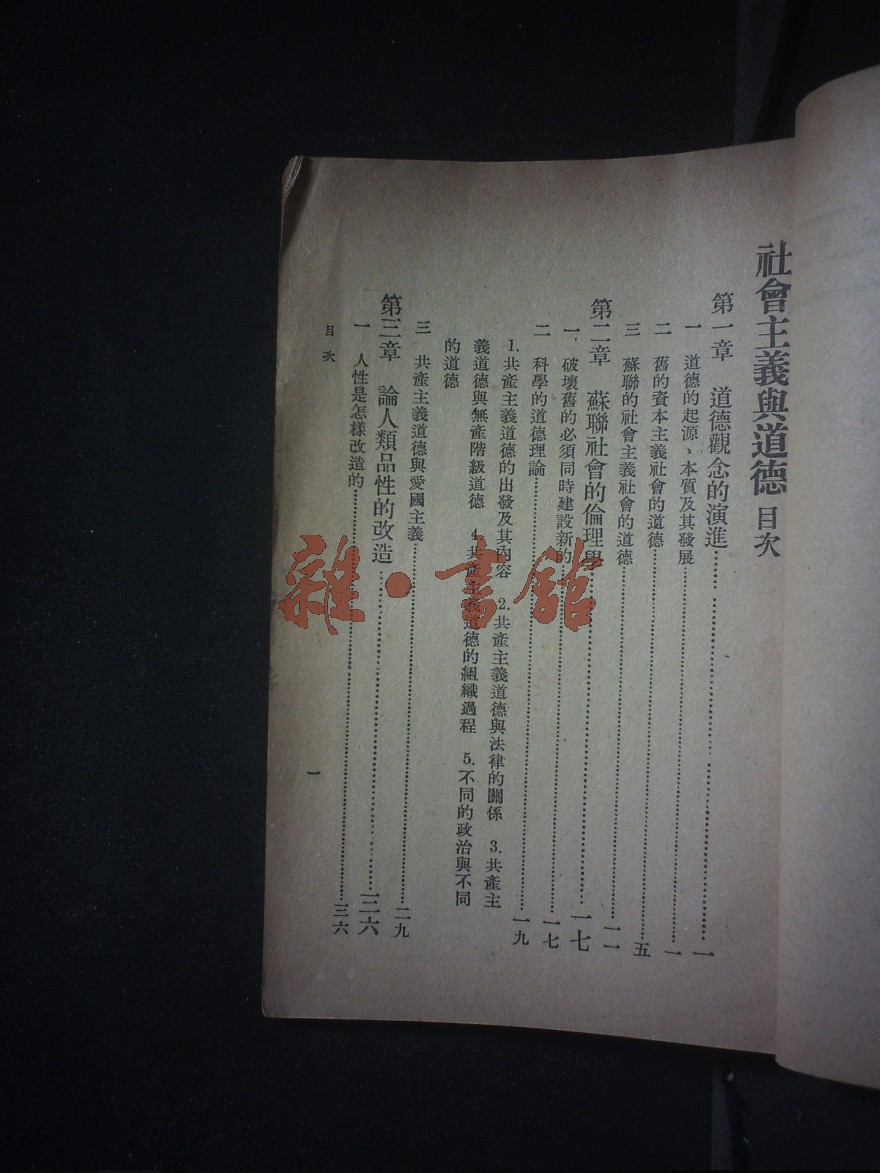 社會主義與道德 目次
第一章 道德觀念的演進……………一
一 道德的起源、本質及其發展……………一
二 舊的資本主義社會的道德……………五
三 蘇聯的社會主義社會的道德……………一一
第二章 蘇聯社會的倫理學……………一七
一、破壞舊的必須同時建設新的……………一七
二 科學的道德理論……………一九
1.共產主義道德的出發及其內容 2.共產主義道德與法律的關係 3.共產主
義道德與無產階級道德 4.共產主義道德的組織過程 5.不同的政治與不同
的道德
三 共產主義道德與愛國主義……………二九
第三章 論人類品性的改造……………三六
一 人性是怎樣改造的……………三六
目次
一
雜·書館